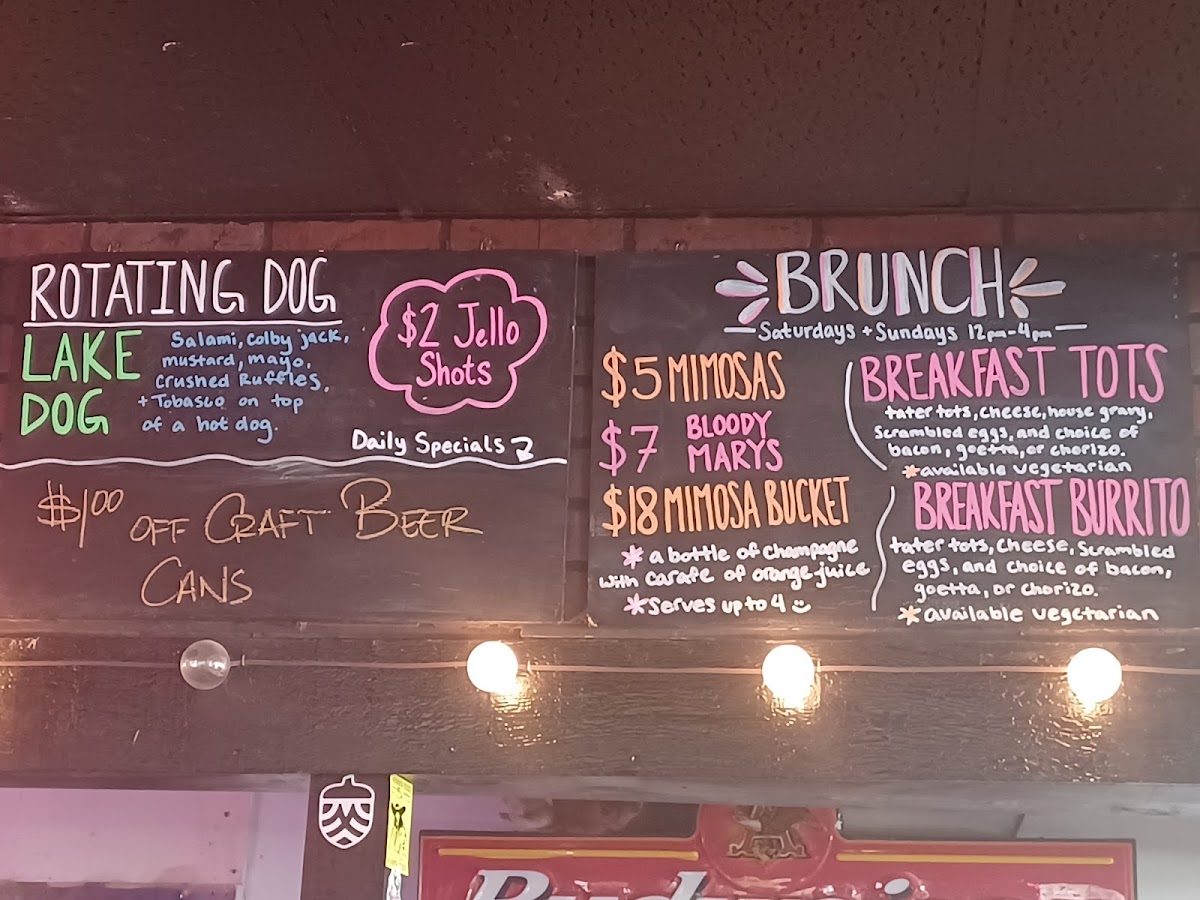 ROTATING DOG
LAKE
DOG
Salami, Colby jack,
mustard, mayo,
Crushed Ruffles,
+ Tobasco on top
of a hot dog.
$2 Jello
Shots
Daily Specials
$1.00 OFF CRAFT BEER
CANS
BRUNCH
Saturdays + Sundays 12pm-4pm
$5 MIMOSAS
$7 BLOODY
MARYS
$18 MIMOSA BUCKET
* a bottle of champagne
with carafe of orange juice
* Serves up to 4
BREAKFAST TOTS
tater tots, cheese, house gravy,
Scrambled eggs, and choice of
bacon, goetta, or chorizo.
* available vegetarian
BREAKFAST BURRITO
tater tots, cheese, scrambled
eggs, and choice of bacon,
goetta, or chorizo.
* available vegetarian